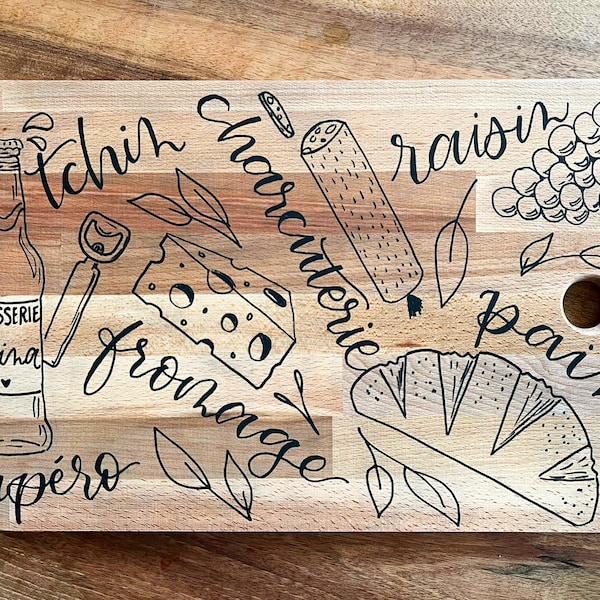 tchin
charcuterie
raisin
SSERIE
ina
fromage
pain
apéro